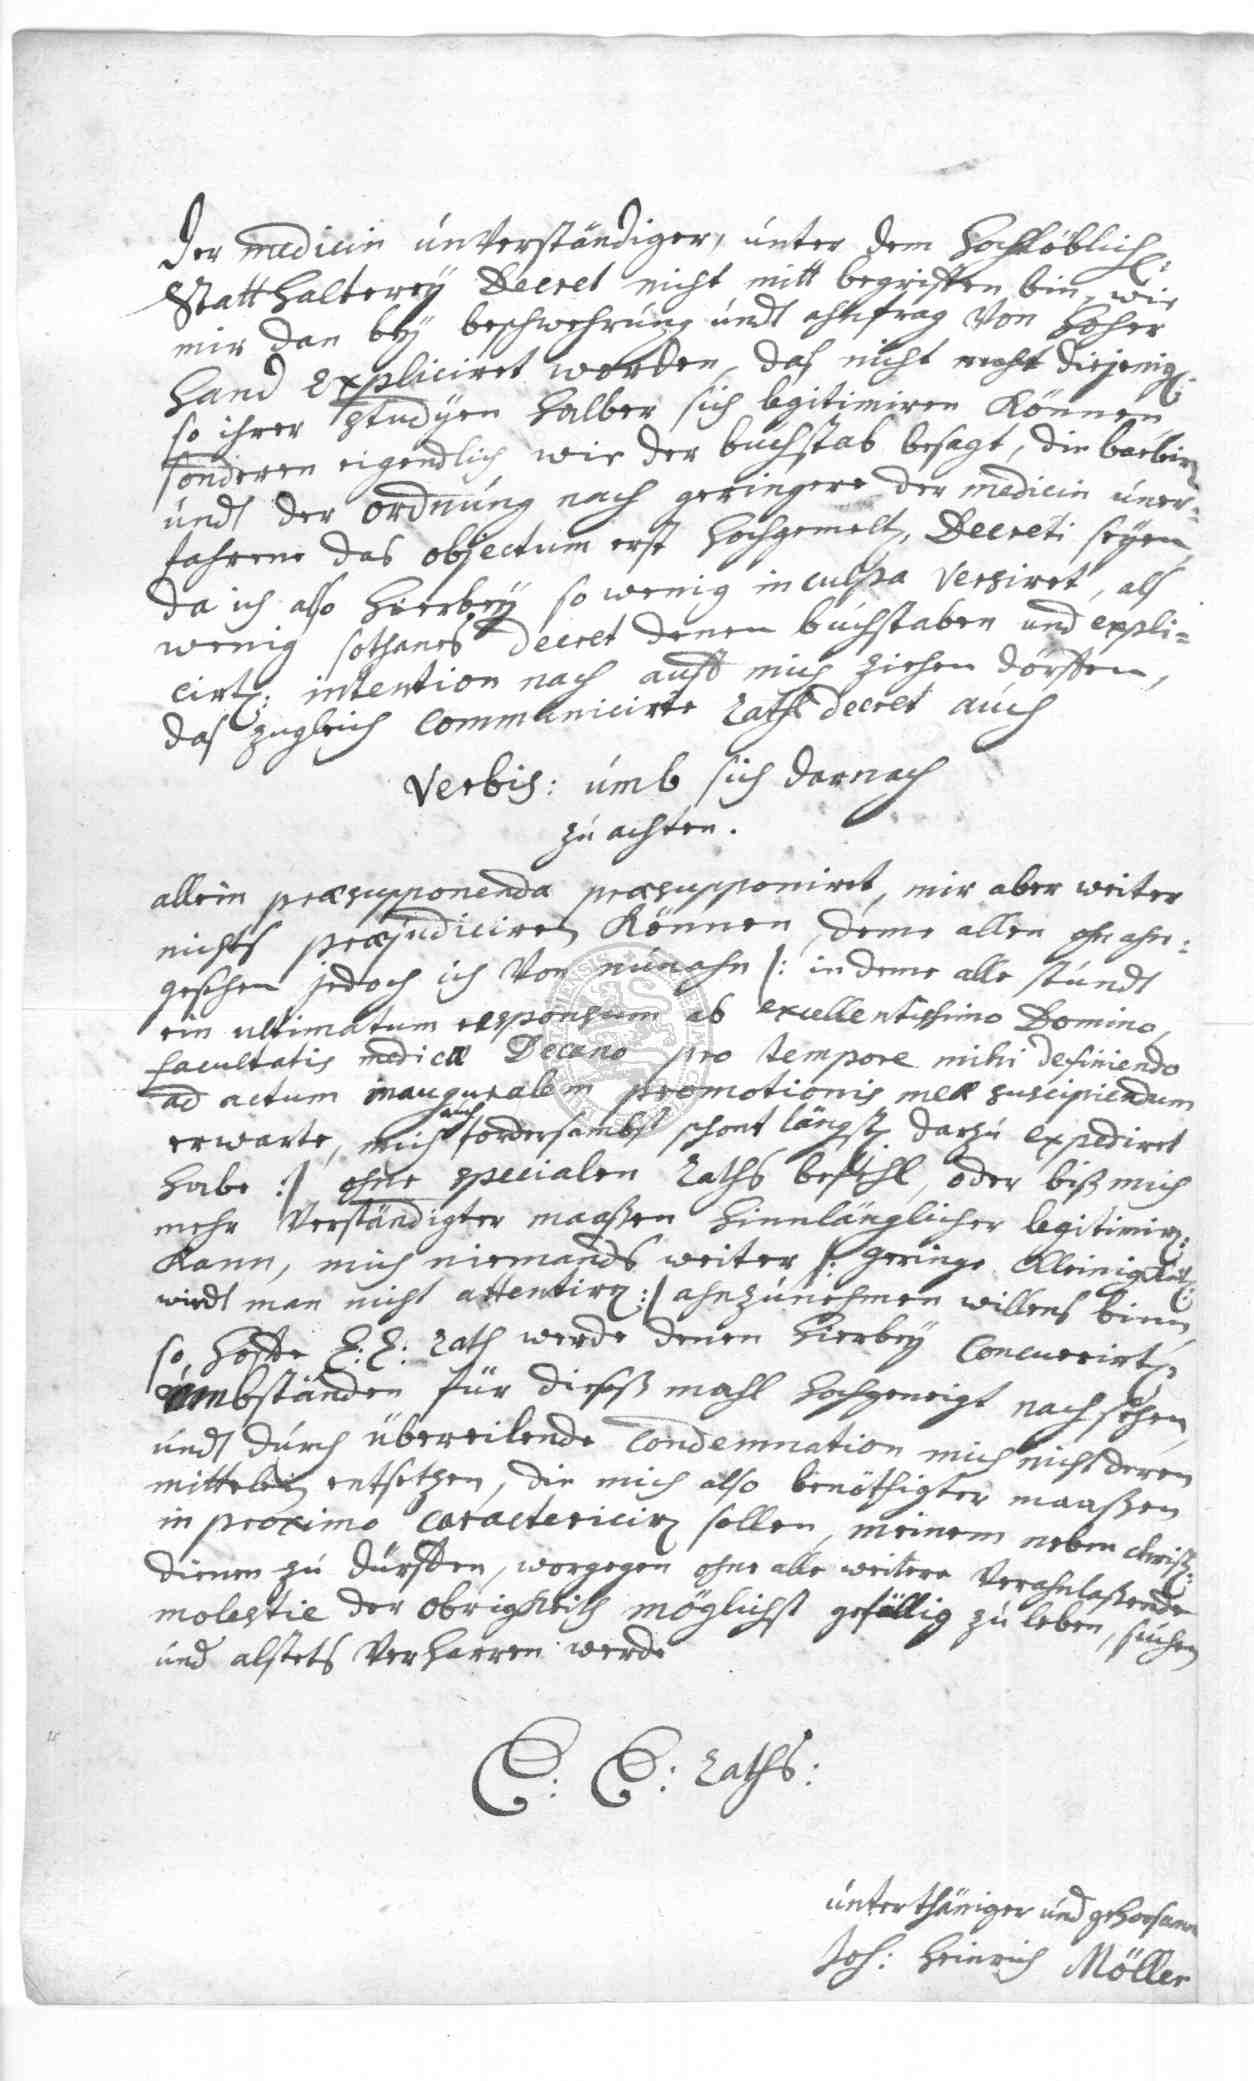 der medicin unverständiger, unter dem hochlöblich:
Statthalterey Decret nicht mitt begriffen bin, wie
mir dan bey beschwehrung undt ahnfrag von hoher
hand expliciret worden, daß nicht diejenig:
so ihrer studyen halber sich legitimiren können,
sonderen eigendlich wie der buchstab besagt, die barbirer
undt der ordnung nach geringere der medicin uner-
fahrene das objectum erst hochgemelt. Decreti seyen,
da ich also hierbey so wenig in culpa versiret, alß
wenig sothanes decret denen buchstaben und expli-
cirt: intention nach auff mich ziehen dörffen,
das zugleich communicirte Raths decret auch
Verbis: umb sich darnach
zu achten.
allein praesupponenda praesupponiret, mir aber weiter
nichts praejudiciren können, deme allen ohn ahn-
gesehen jedoch ich von nun ahn /: in deme alle stundt
ein ultimatum responsum ab excellentissimo Domino,
facultatis medicae Decano pro tempore mihi definiendo
ad actum inauguralem promotionis meae suscipiendum
erwarte, mich auch fordersambst schont längst darzu expediret
habe :/ ohne specialen Raths befehl, oder biß mich
mehr verständigter maaßen hinlänglicher legitimir:
kann, mich niemands weiter /: geringe Kleinigkeit:
wirdt man nicht attentir: :/ ahnzunehmen willens binn,
so hoffe E: E: Rath werde denen hierbey concurrirt:
umbständen für dießß mahl hochgeneigt nachsehen,
undt durch übereilende condemnation mich nicht deren
mittelen entsetzen, die mich also benöthigter maaßen
in proximo caractericir: sollen, meinem neben christ:
dienen zu dürffen, worgegen ohne alle weitere verahnlaßende
molestie der obrigkeith möglichst gefällig zu leben, suchen
und alstets verharren werde
E: E: Raths:
unterthäniger und gehorsamer
Joh: Heinrich Möller